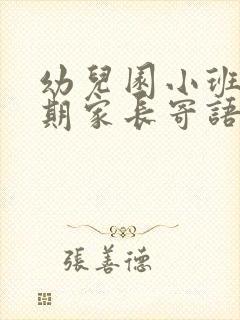 幼兒園小班
期家長寄語
張善德